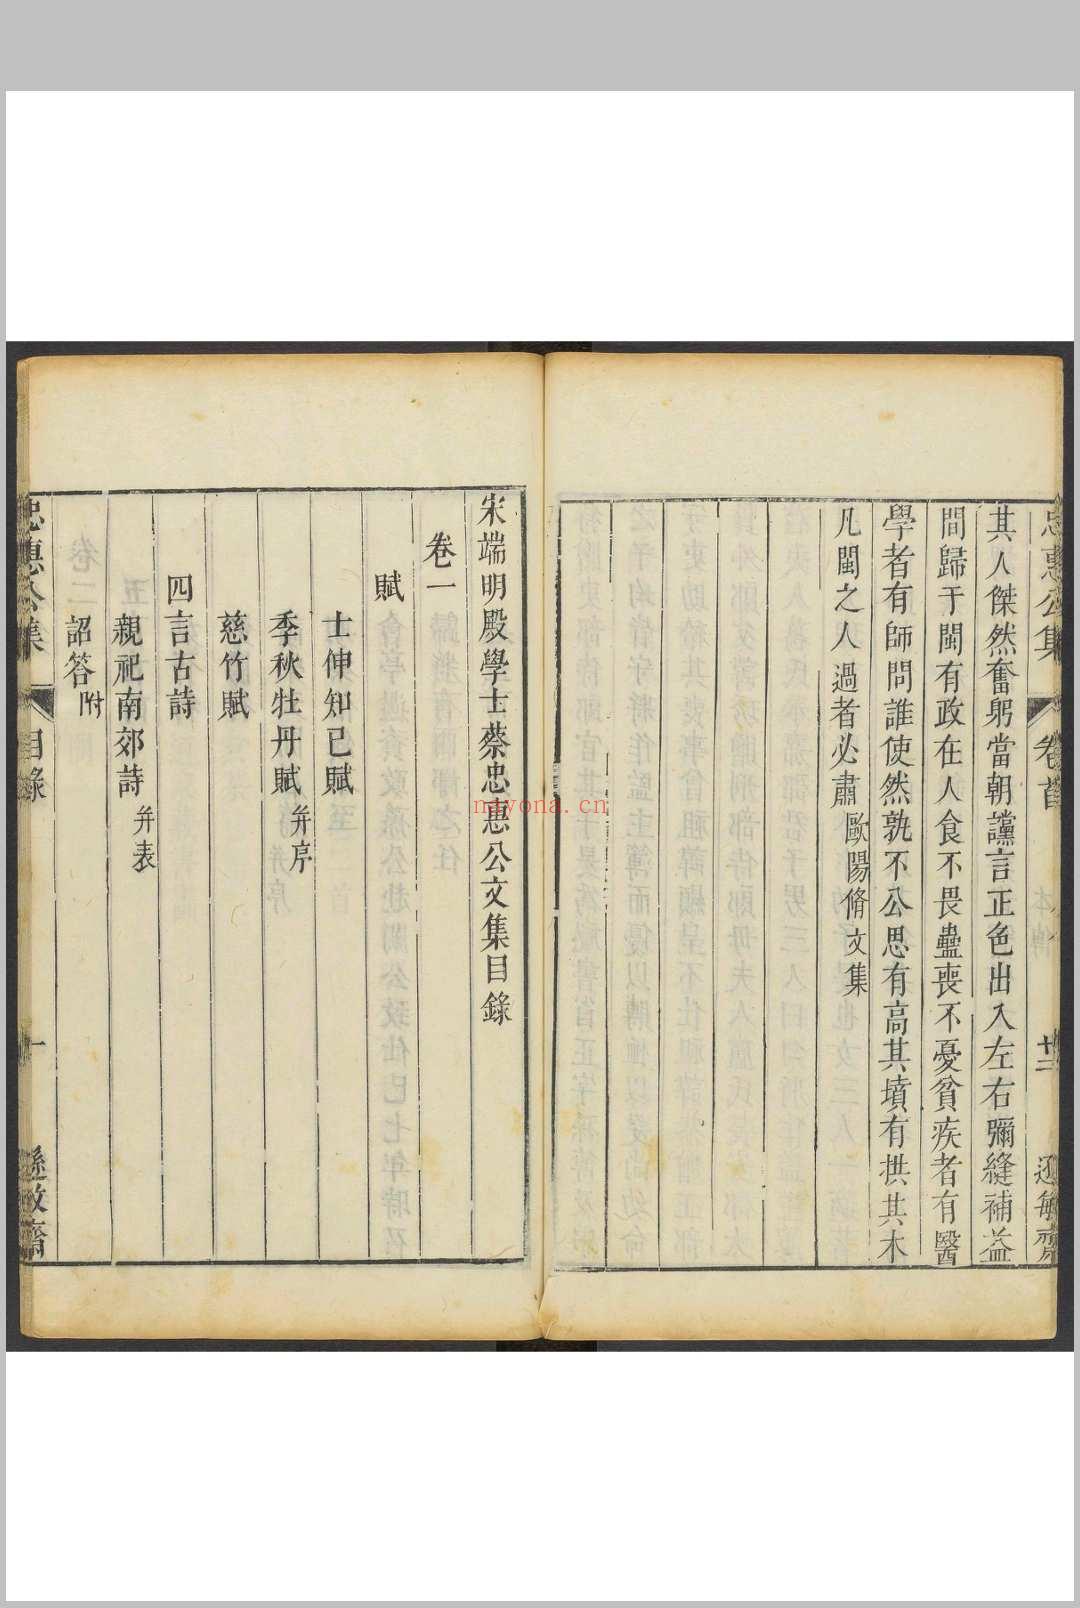 忠惠公集 卷首 本傳 廿三 遜敏齋
其人傑然奮躬當朝讜言正色出入左右彌縫補益
間歸于閩有政在人食不畏蠱喪不憂貧疾者有醫
學者有師問誰使然孰不公思有高其墳有拱其木
凡閩之人過者必肅歐陽脩文集
宋端明殿學士蔡忠惠公文集目錄
卷一
賦
士伸知己賦
季秋牡丹賦并序
慈竹賦
四言古詩
親祀南郊詩并表
詔答附
忠惠公集 目錄 一 遜敏齋
nayona.cn